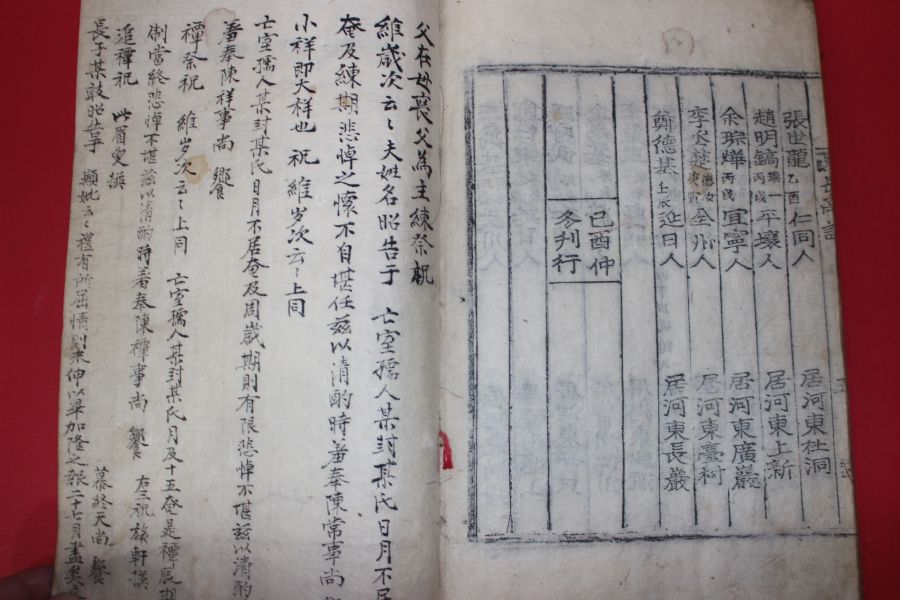 張世龍 乙酉 仁同人 居河東杜洞
趙明鎬 丙戌 平壤人 居河東上新
余琮燁 丙戌 宜寧人 居河東廣巖
李 庚寅 全州人 居河東臺柯
鄭德基 壬辰 延日人 居河東長巖
己酉仲
冬刋行
父在母喪父為主練祭祝
維歲次云〻夫姓名昭告于 亡室孺人某封某氏日月不居
奄及練期悲悼之懷不自堪任玆以清酌時羞奉陳常事尚
小祥即大祥也 祝 維岁次云〻上同
亡室孺人某封某氏日月不居奄及周歲期則有限悲悼不堪玆以清酌
羞奉陳祥事尚 饗
禫祭祝 維岁次云〻上同 亡室孺人某封某氏月及十五奄是禫辰期
制當終悲悼不堪玆以清酌時羞奉陳禫事尚 饗 右三祝旅軒譔
追禫祝 此眉叟譔
長子某敢昭告于 顯妣云〻禮有所屈情則未伸以畢加隆之報二十七月盡矣
慕終天尚 饗